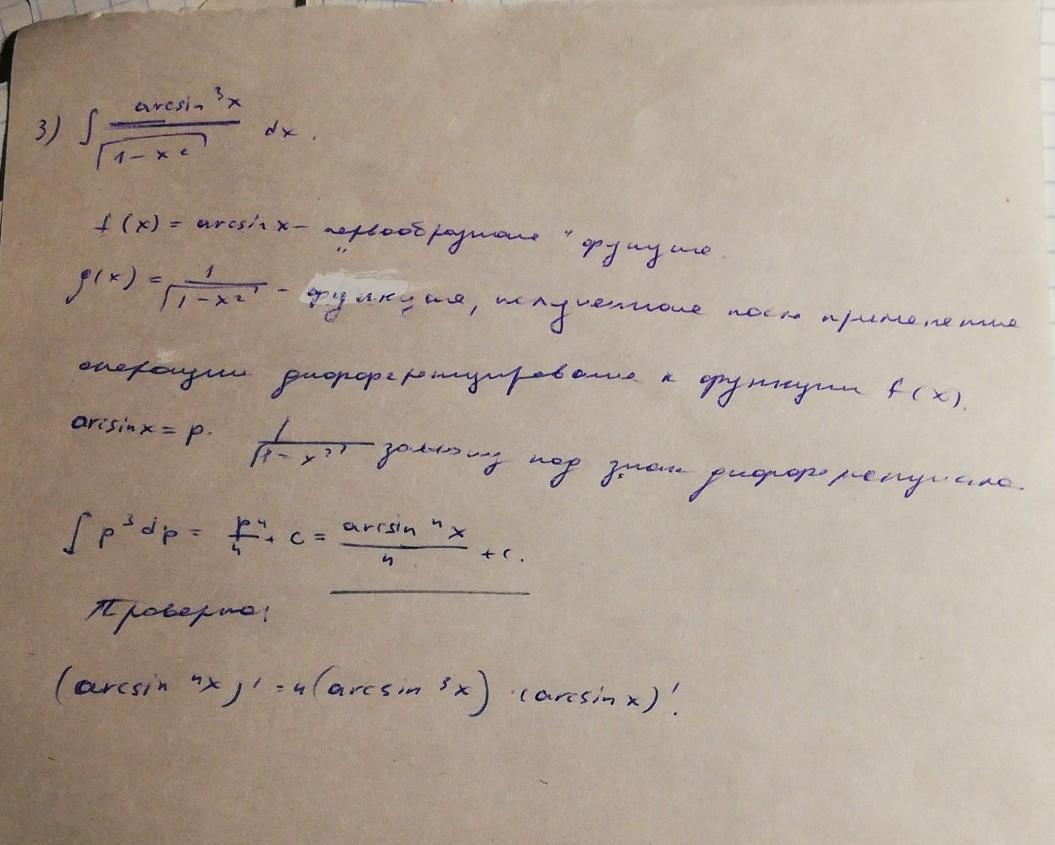 3) ∫ arcsin³x / √(1-x²) dx.
f(x) = arcsin x - "первообразная" функция.
g(x) = 1/√(1-x²) - функция, полученная после применения
операции дифференцирования к функции f(x).
arcsinx = p. 1/√(1-x²) заношу под знак дифференциала.
∫ p³dp = p⁴/4 + c = arcsin⁴x/4 + c.
Проверка:
(arcsin⁴x)' = 4(arcsin³x) · (arcsin x)'.